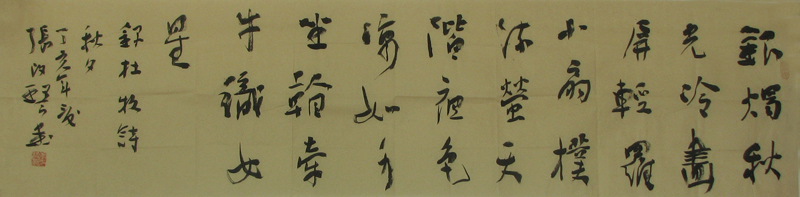 銀燭秋
光冷畫
屏輕羅
小扇撲
流螢天
階夜色
涼如水
坐看牽
牛織女
星
錄杜牧詩
秋夕
丁亥年
張改琴書